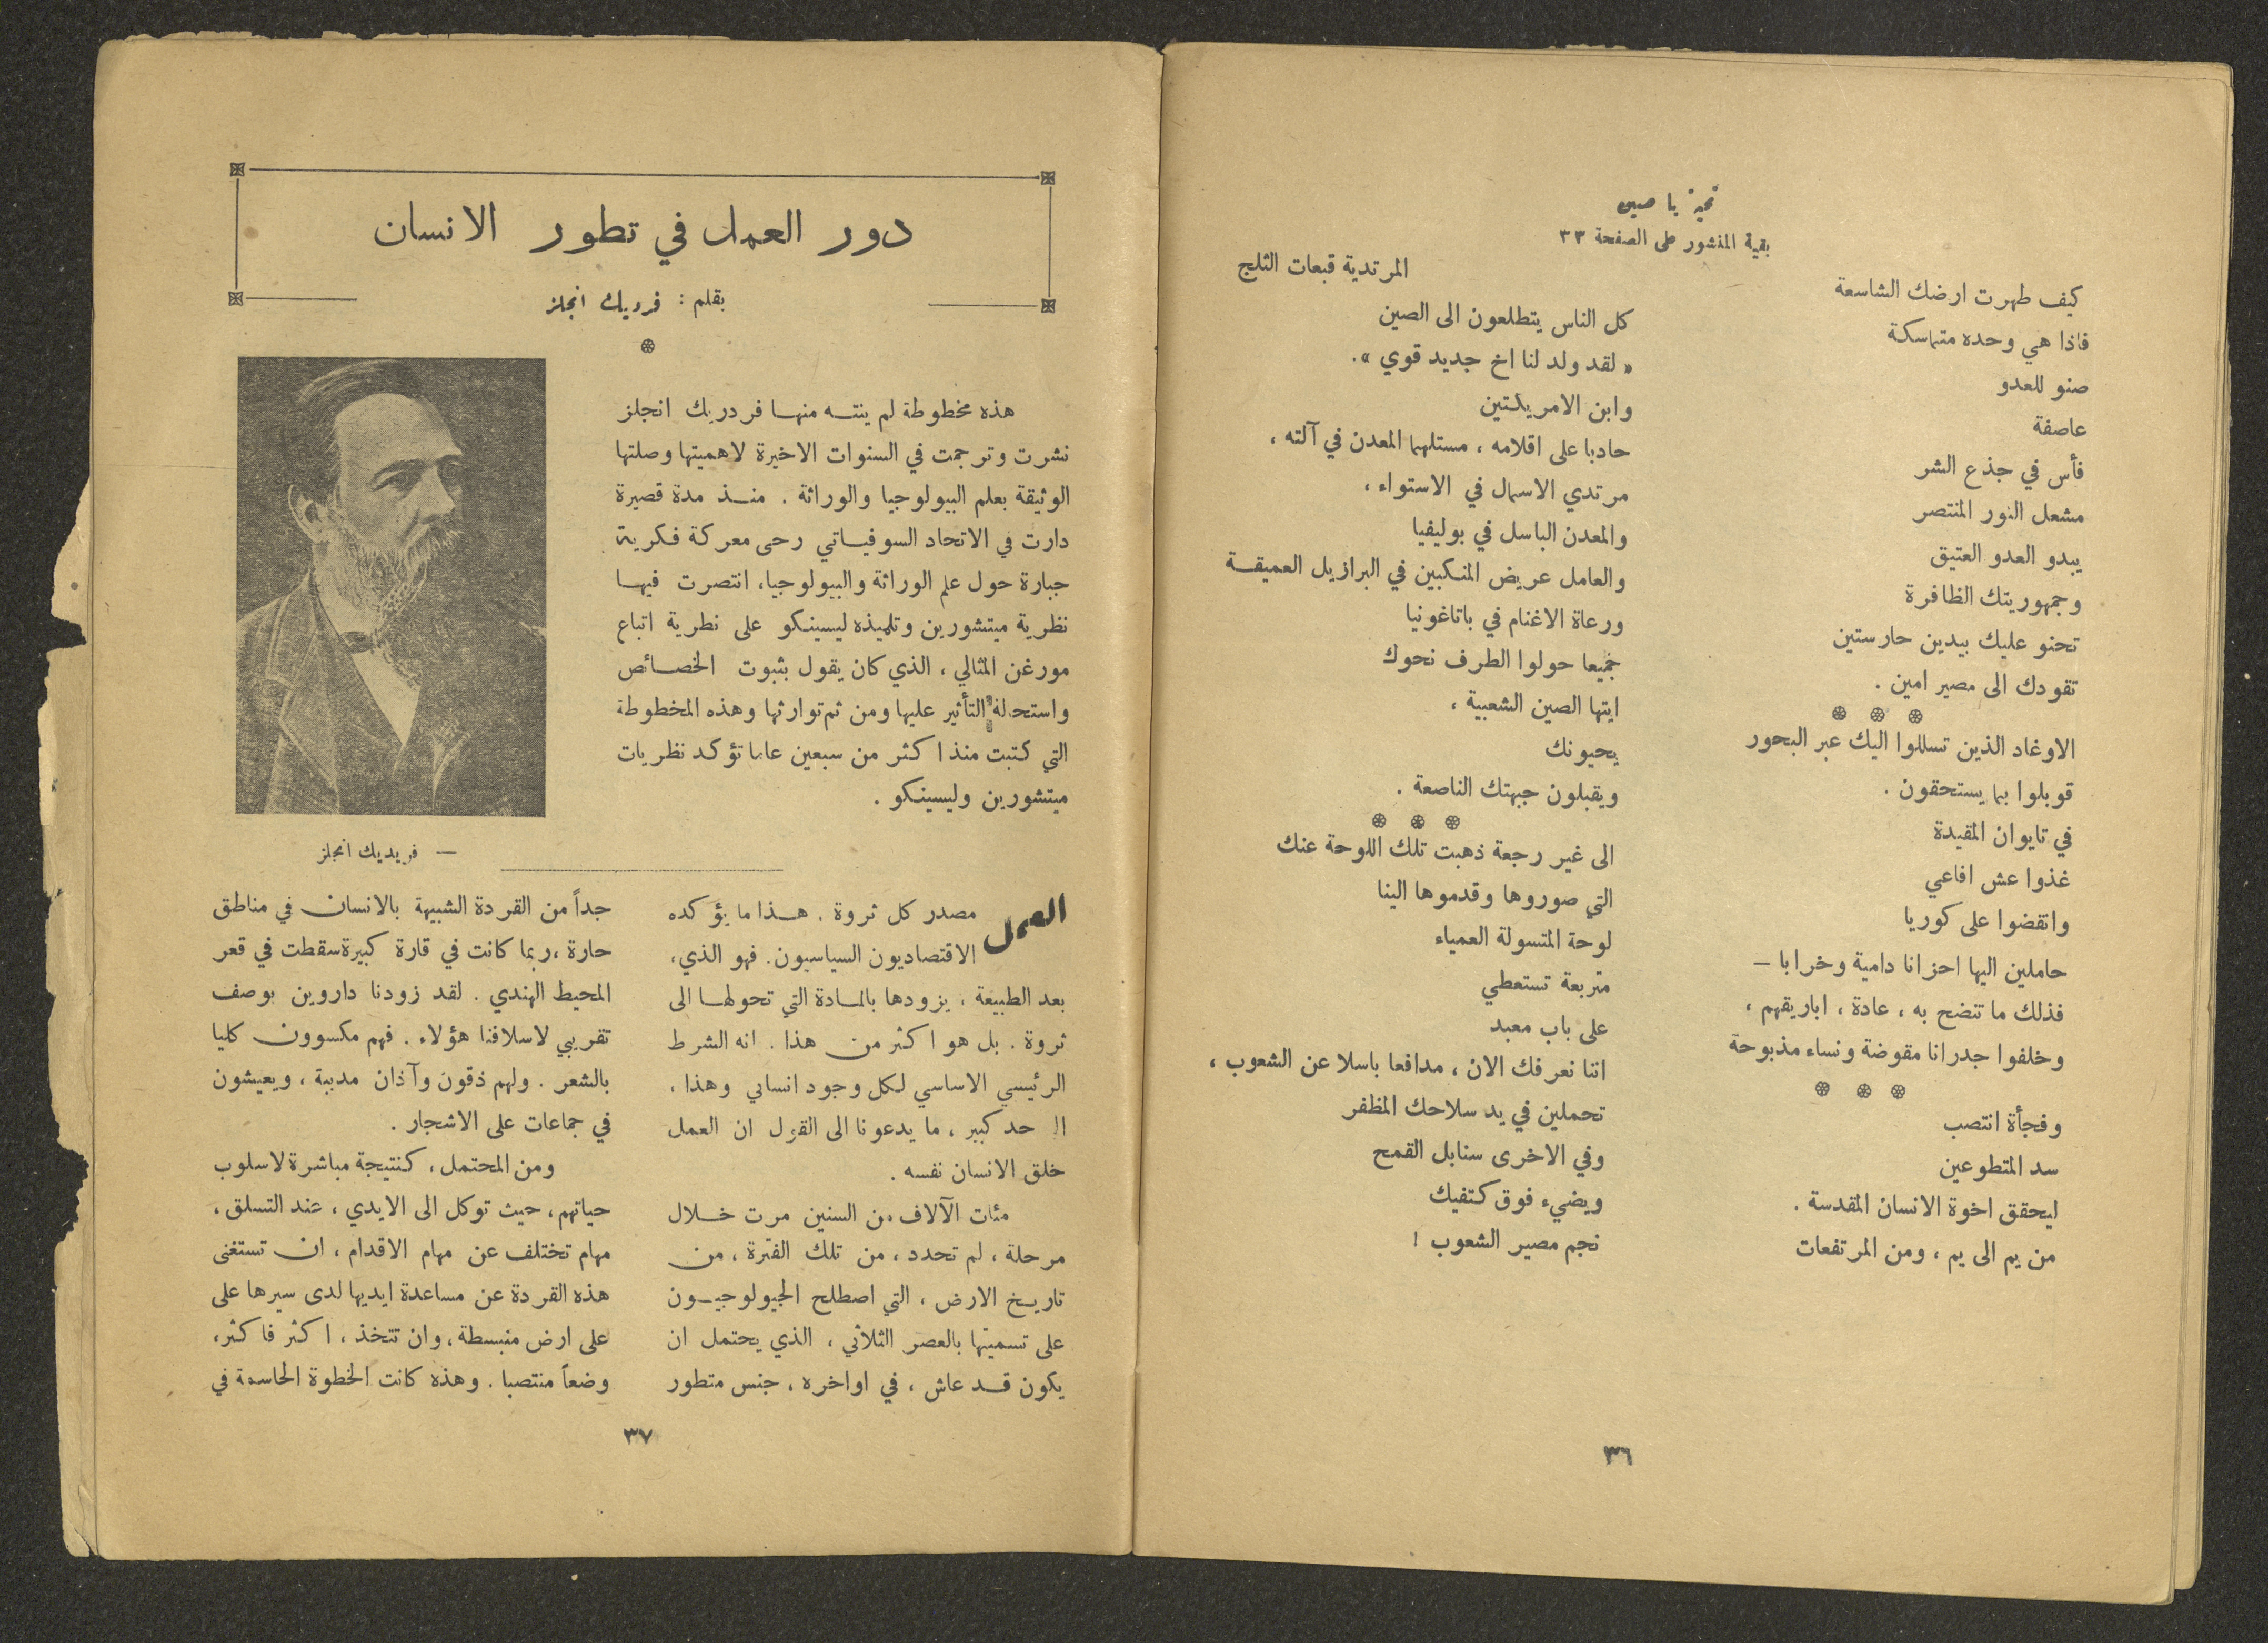 تحية يا صين
بقية المنشور على الصفحة ٣٣
كيف طهرت ارضك الشاسعة
فاذا هي وحده متماسكة
صنو للعدو
عاصفة
فأس في جذع الشر
مشعل النور المنتصر
يبدو العدو العتيق
وجمهوريتك الظافرة
تحنو عليك بيدين حارستين
تقودك الى مصير امين .
الاوغاد الذين تسللوا اليك عبر البحور
قوبلوا بما يستحقون .
في تايوان المقيدة
غذوا عش افاعي
وانقضوا على كوريا
حاملين اليها احزانا دامية وخرابا —
فذلك ما تنضح به ، عادة ، اباريقهم ،
وخلفوا جدرانا مقوضة ونساء مذبوحة
وفجأة انتصب
سد المتطوعين
ليحقق اخوة الانسان المقدسة .
من يم الى يم ، ومن المرتفعات
المرتدية قبعات الثلج
كل الناس يتطلعون الى الصين
« لقد ولد لنا اخ جديد قوي ».
وابن الامريكتين
حادبا على اقلامه ، مستلهما المعدن في آلته ،
مرتدي الاسمال في الاستواء ،
والمعدن الباسل في بوليفيا
والعامل عريض المنكبين في البرازيل العميقة
ورعاة الاغنام في باتاغونيا
جميعا حولوا الطرف نحوك
ايتها الصين الشعبية ،
يحيونك
ويقبلون جبهتك الناصعة .
الى غير رجعة ذهبت تلك اللوحة عنك
التي صوروها وقدموها الينا
لوحة المتسولة العمياء
متربعة تستعطي
على باب معبد
اننا نعرفك الان ، مدافعا باسلا عن الشعوب ،
تحملين في يد سلاحك المظفر
وفي الاخرى سنابل القمح
ويضيء فوق كتفيك
نجم مصير الشعوب !
٣٦
دور العمل في تطور الانسان
بقلم : فردريك انجلز
هذه مخطوطة لم ينته منها فردريك انجلز
نشرت وترجمت في السنوات الاخيرة لاهميتها وصلتها
الوثيقة بعلم البيولوجيا والوراثة . منذ مدة قصيرة
دارت في الاتحاد السوفياتي رحى معركة فكرية
جبارة حول علم الوراثة والبيولوجيا، انتصرت فيها
نظرية ميتشورين وتلميذه ليسينكو على نظرية اتباع
مورغن المثالي ، الذي كان يقول بثبوت الخصائص
واستحالة التأثير عليها ومن ثم توارثها وهذه المخطوطة
التي كتبت منذ اكثر من سبعين عاما تؤكد نظريات
ميتشورين وليسينكو .
— فريديك انجلز
العمل مصدر كل ثروة . هذا ما يؤكده
الاقتصاديون السياسيون. فهو الذي،
بعد الطبيعة ، يزودها بالمادة التي تحولها الى
ثروة . بل هو اكثر من هذا . انه الشرط
الرئيسي الاساسي لكل وجود انساني وهذا ،
الى حد كبير ، ما يدعونا الى القول ان العمل
خلق الانسان نفسه .
مئات الآلاف من السنين مرت خلال
مرحلة ، لم تحدد ، من تلك الفترة ، من
تاريخ الارض ، التي اصطلح الجيولوجيون
على تسميتها بالعصر الثلاثي ، الذي يحتمل ان
يكون قد عاش ، في اواخره ، جنس متطور
جداً من القردة الشبيهة بالانسان في مناطق
حارة ، ربما كانت في قارة كبيرة سقطت في قعر
المحيط الهندي . لقد زودنا داروين بوصف
تقريبي لاسلافنا هؤلاء . فهم مكسوون كليا
بالشعر . ولهم ذقون وآذان مدببة ، ويعيشون
في جماعات على الاشجار .
ومن المحتمل ، كنتيجة مباشرة لاسلوب
حياتهم ، حيث توكل الى الايدي ، عند التسلق ،
مهام تختلف عن مهام الاقدام ، ان تستغنى
هذه القردة عن مساعدة ايديها لدى سيرها على
على ارض منبسطة ، وان تتخذ ، اكثر فاكثر،
وضعاً منتصبا . وهذه كانت الخطوة الحاسمة في
٣٧